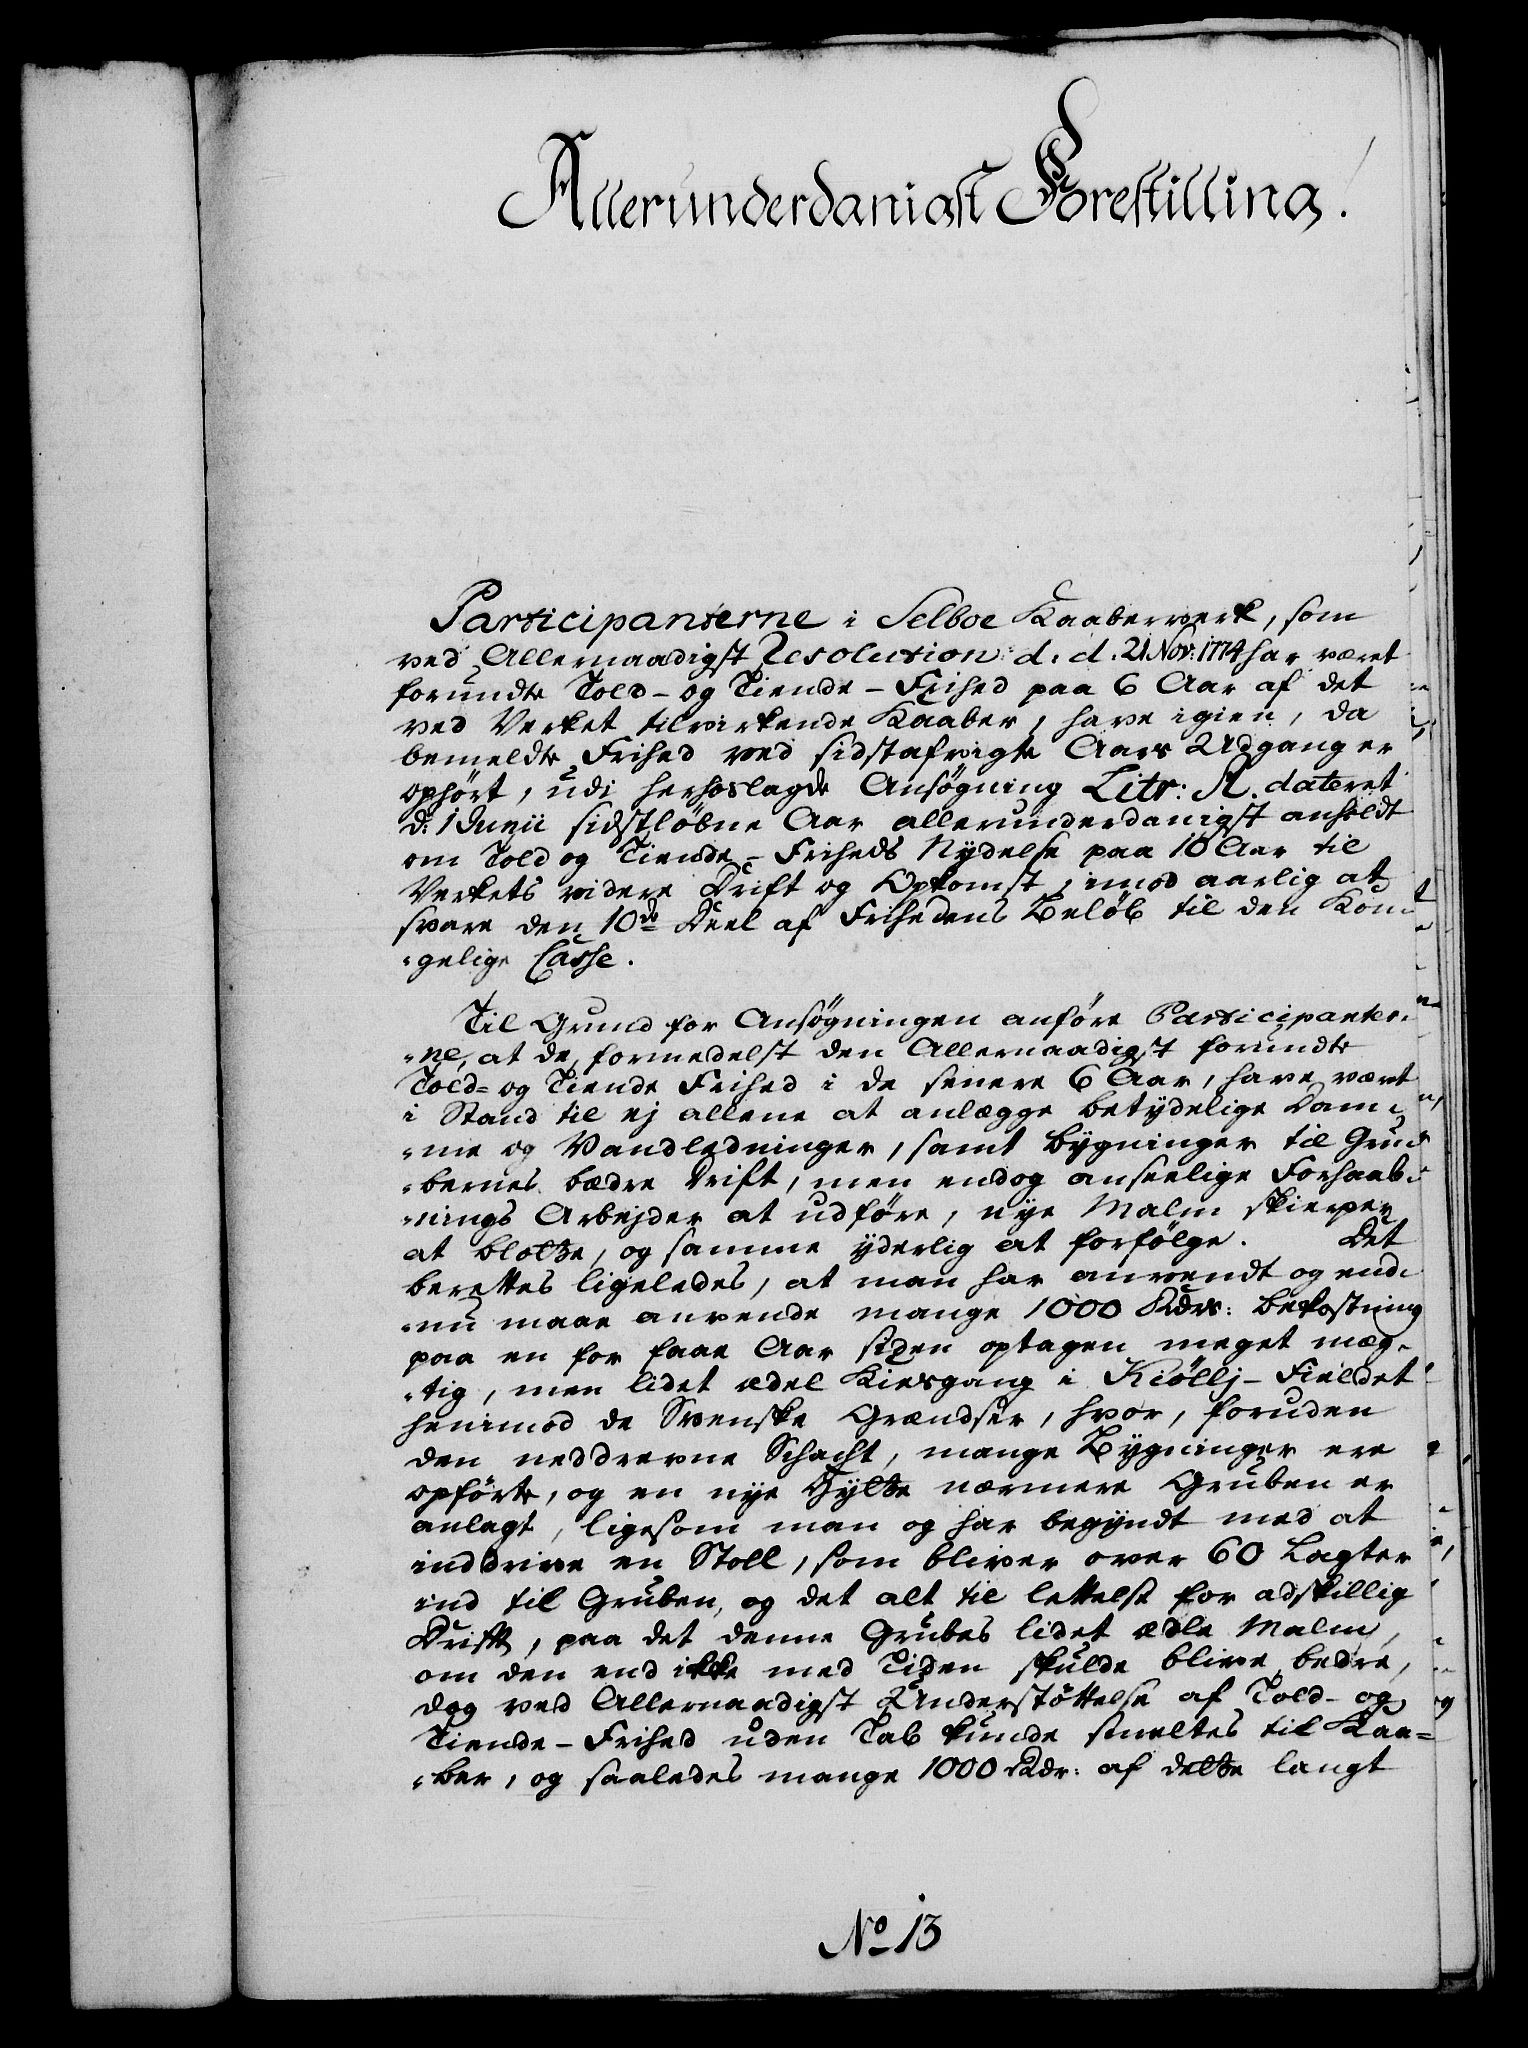 Allerunderdanigst Forestilling.
Participanterne i Selboe Kaaberverk, som
ved Allernaadigst Resolution d. d. 21 Nov: 1774 har været
forundte Told- og Tiende-Frihed paa 6 Aar af det
ved Verket tilvirkende Kaaber, have igien, da
bemeldte Frihed ved sidstafvigte Aars Udgang er
ophørt, udi herhoslagde Ansøgning Litr: A. dateret
d: 1 Junii sidstløbne Aar allerunderdanigst anholdt
om Told og Tiende-Friheds Nydelse paa 10 Aar til
Verkets videre Drift og Opkomst, imod aarlig at
svare den 10de Deel af Frihedens Beløb til den Kon-
-gelige Casse.
Til Grund for Ansøgningen anføre Participanter-
-ne, at de, formedelst den Allernaadigst forundte
Told- og Tiende Frihed i de senere 6 Aar, have vært
i Stand til ej allene at anlægge betydelige Dam-
-me og Vandledninger, samt bygninger til Gru-
-bernes bædre Drift, men endog anseelige Forhaab-
-nings Arbejder at udføre, nye Malm skierper
at blotte, og samme yderlig at forfølge. Det
berettes ligeledes, at man har anvendt og end-
-nu maae anvende mange 1000 Rdrs: bekostning
paa en for faae Aar siden optagen meget mæg-
-tig, men lidet ædel Kiesgang i Kiøllj-Fieldet
henimod de Svenske Grændser, hvor, foruden
den neddrevne Schacht, mange Bygninger ere
opførte, og en nye Hytte nærmere Gruben er
anlagt, ligesom man og har begyndt med at
inddrive en Stoll, som bliver over 60 Lagter
ind til Gruben, og det alt til lettelse for adskillig
Drift, paa det denne Grubes lidet ædle Malm,
om den end ikke med Tiden skulde blive bedre,
dog ved Allernaadigst Understøttelse af Told- og
Tiende-Frihed uden Tab kunde smeltes til Kaa-
-ber, og saaledes mange 1000 Rdr: af dette langt
No 13